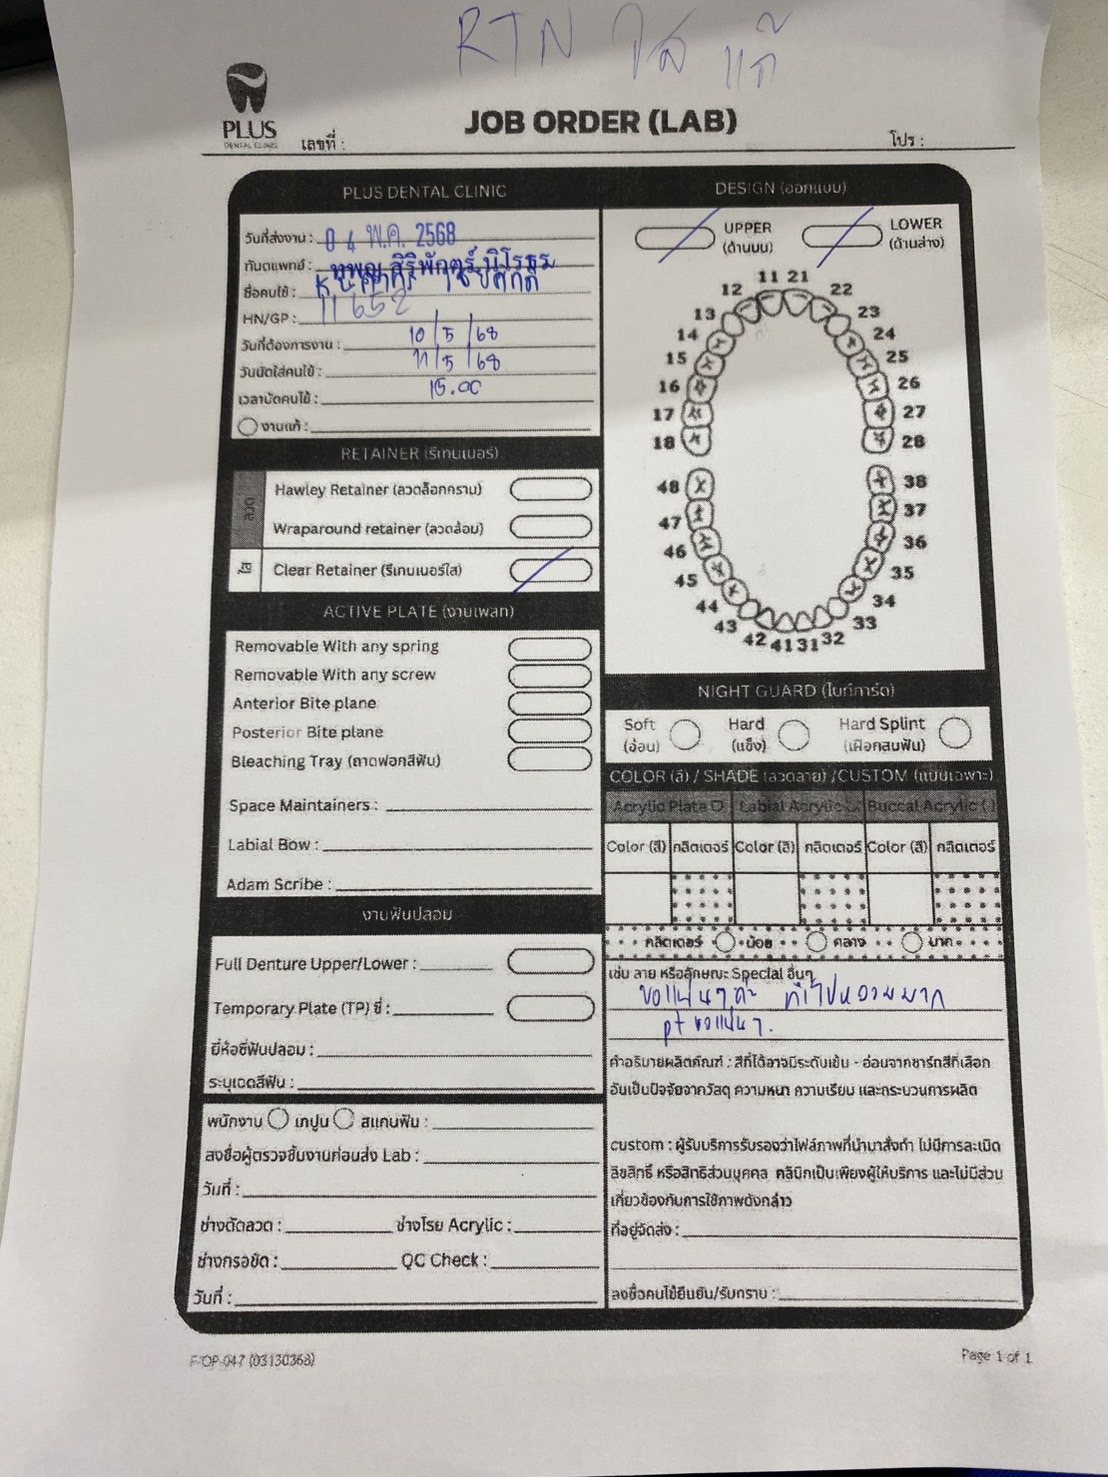 RTN ใส แก้
PLUS
DENTAL CLINIC
JOB ORDER (LAB)
เลขที่ :
โปร :
PLUS DENTAL CLINIC
วันที่ส่งงาน : 04 พ.ค. 2568
ทันตแพทย์ : ทพญ. สิริพักตร์ นิโรธร
ชื่อคนไข้ :
HN/GP : 11652
วันที่ต้องการงาน : 10/5/68
วันนัดใส่คนไข้ : 11/5/68
เวลานัดคนไข้ : 15.00
งานแก้ :
RETAINER (รีเทนเนอร์)
ลวด
Hawley Retainer (ลวดล็อกกราม)
Wraparound retainer (ลวดล้อม)
ใส
Clear Retainer (รีเทนเนอร์ใส)
ACTIVE PLATE (งานเพลท)
Removable With any spring
Removable With any screw
Anterior Bite plane
Posterior Bite plane
Bleaching Tray (ถาดฟอกสีฟัน)
Space Maintainers :
Labial Bow :
Adam Scribe :
งานฟันปลอม
Full Denture Upper/Lower :
Temporary Plate (TP) ซี่ :
ยี่ห้อซี่ฟันปลอม :
ระบุเฉดสีฟัน :
พนักงาน เทปูน สแกนฟัน :
ลงชื่อผู้ตรวจชิ้นงานก่อนส่ง Lab :
วันที่ :
ช่างดัดลวด : ช่างโรย Acrylic :
ช่างกรอขัด : QC Check :
วันที่ :
DESIGN (ออกแบบ)
UPPER
(ด้านบน)
LOWER
(ด้านล่าง)
11 21
12 22
13 23
14 24
15 25
16 26
17 27
18 28
48 38
47 37
46 36
45 35
44 34
43 33
42 41 31 32
NIGHT GUARD (ไนท์การ์ด)
Soft
(อ่อน)
Hard
(แข็ง)
Hard Splint
(เฝือกสบฟัน)
COLOR (สี) / SHADE (ลวดลาย) /CUSTOM (แบบเฉพาะ)
Acrylic Plate Labial Acrylic Buccal Acrylic
Color (สี) กลิตเตอร์ Color (สี) กลิตเตอร์ Color (สี) กลิตเตอร์
กลิตเตอร์ น้อย กลาง มาก
เช่น ลาย หรือลักษณะ Special อื่นๆ
ขอแน่นๆ ค่ะ ทำไปหลวมมาก
pt ขอแน่นๆ.
คำอธิบายผลิตภัณฑ์ : สีที่ได้อาจมีระดับเข้ม - อ่อนจากชาร์ทสีที่เลือก
อันเป็นปัจจัยจากวัสดุ ความหนา ความเรียบ และกระบวนการผลิต
custom : ผู้รับบริการรับรองว่าไฟล์ภาพที่นำมาสั่งทำ ไม่มีการละเมิด
ลิขสิทธิ์ หรือสิทธิส่วนบุคคล คลินิกเป็นเพียงผู้ให้บริการ และไม่มีส่วน
เกี่ยวข้องกับการใช้ภาพดังกล่าว
ที่อยู่จัดส่ง :
ลงชื่อคนไข้ยืนยัน/รับทราบ :
F/OP-047 (03130368)
Page 1 of 1